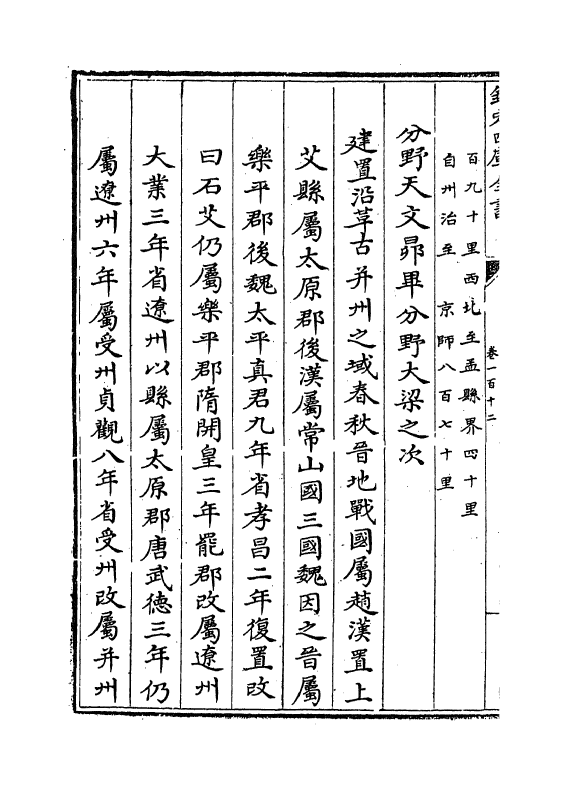 欽定四庫全書
卷一百十二
百九十里西北至盂縣界四十里
自州治至京師八百七十里
分野天文昴畢分野大梁之次
建置沿革古并州之域春秋晉地戰國屬趙漢置上
艾縣屬太原郡後漢屬常山國三國魏因之晉屬
樂平郡後魏太平真君九年省孝昌二年復置改
曰石艾仍屬樂平郡隋開皇三年罷郡改屬遼州
大業三年省遼州以縣屬太原郡唐武德三年仍
屬遼州六年屬受州貞觀八年省受州改屬并州